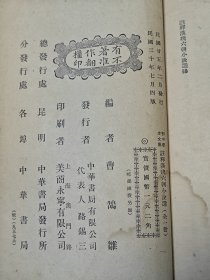 民國廿五年二月發行
民國三十年七月四版
實價國幣一元二角
（郵運匯費另加）
編者 曹鵠雛
發行者 中華書局有限公司
代表人 路錫三
印刷者 美商永寧有限公司
總發行處 昆明 中華書局發行所
分發行處 各埠 中華書局
有著作權
不准翻印